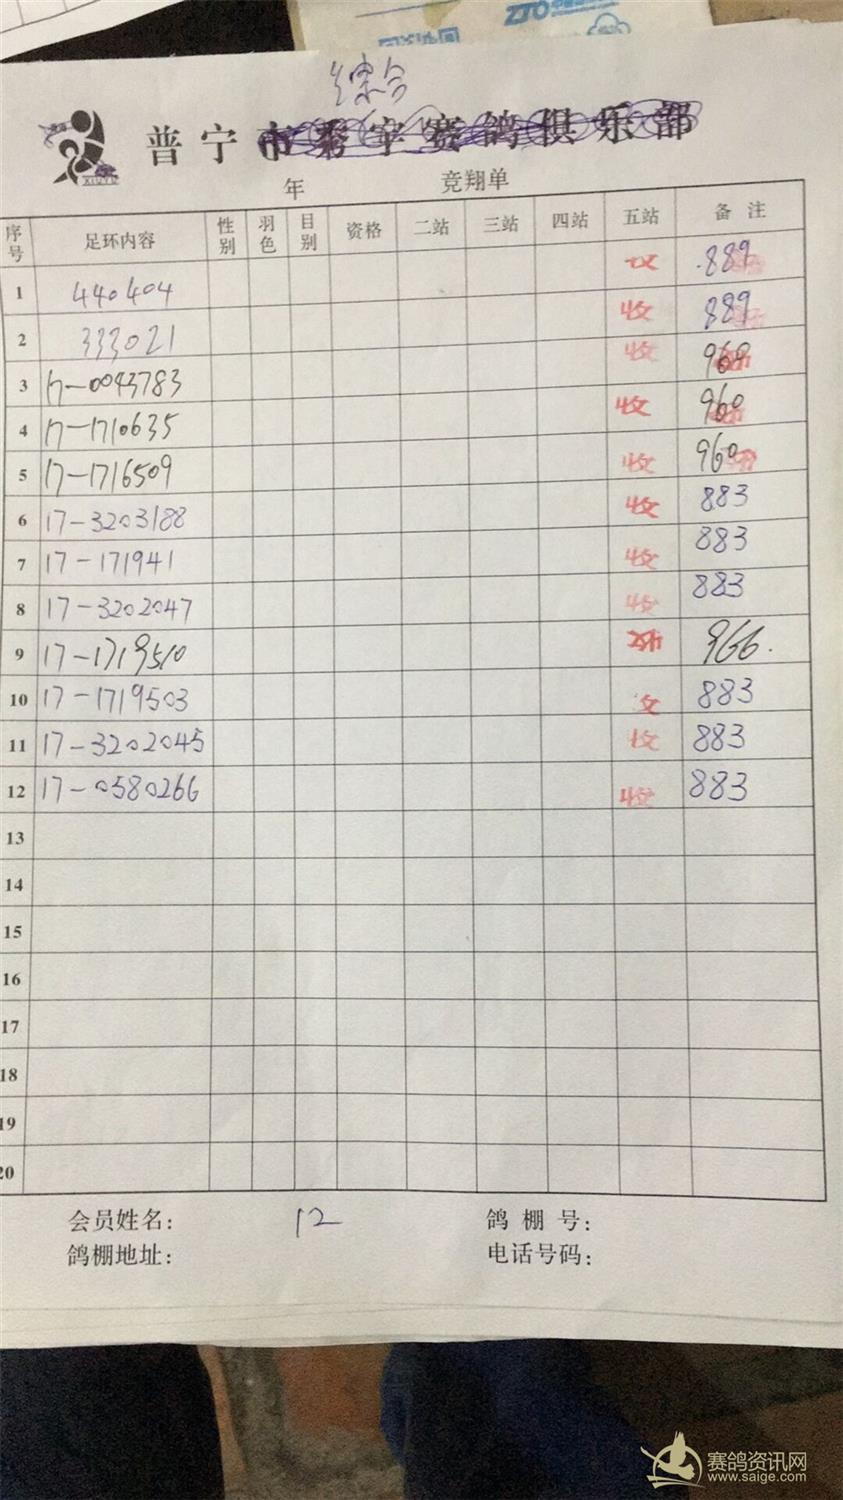 ZTO
综合
普宁市秀宇赛鸽俱乐部
XIUYU
年 竞翔单
序号 足环内容 性别 羽色 目别 资格 二站 三站 四站 五站 备注
1 440404 收 .889
2 333021 收 889
3 17-0043783 收 960
4 17-1710635 收 960
5 17-1716509 收 960
6 17-3203188 收 883
7 17-171941 收 883
8 17-3202047 收 883
9 17-1719510 966.
10 17-1719503 收 883
11 17-3202045 收 883
12 17-0580266 收 883
13
14
15
16
17
18
19
20
会员姓名: 12 鸽棚号:
鸽棚地址: 电话号码:
赛鸽资讯网
www.saige.com